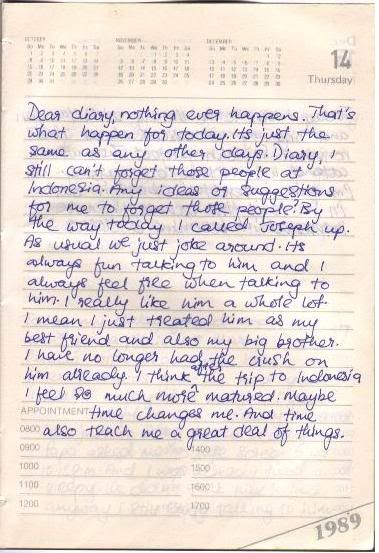 OCTOBER
NOVEMBER
DECEMBER
14
Thursday
Dear diary, nothing ever happens. That's
what happen for today. Its just the
same as any other days. Diary, I
still can't forget those people at
Indonesia. Any ideas or suggestions
for me to forget those people? By
the way today I called Joseph up.
As usual we just joke around. Its
always fun talking to him and I
always feel free when talking to
him. I really like him a whole lot.
I mean I just treated him as my
best friend and also my big brother.
I have no longer had the crush on
him already. I think after the trip to Indonesia
I feel so much more matured. Maybe
APPOINTMENT time changes me. And time
0800 also teach me a great deal of things.
0900 1400
1000 1500
1100 1600
1200 1700
1989